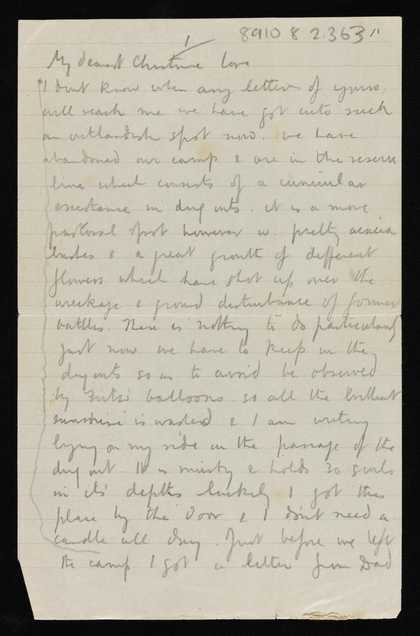 1
8910 8 2.363
My dearest Christine Love
I dont know when any letters of yours
will reach me we have got into such
an outlandish spot now. we have
abandoned our camp & are in the reserve
line which consists of a
existence in dug outs. it is a more
pastoral spot however w. pretty acacia
bushes & a great growth of different
flowers which have shot up over the
wreckage & ground disturbance of former
battles. There is nothing to do particularly
just now we have to keep in the
dug outs so as to avoid be observed
by balloons so all the brilliant
sunshine is wasted & I am writing
lying on my side in the passage of the
dug out It is musty & holds 30 souls
in its depths luckily I got this
place by the door & I dont need a
candle all day. Just before we left
the camp I got a letter from Dad